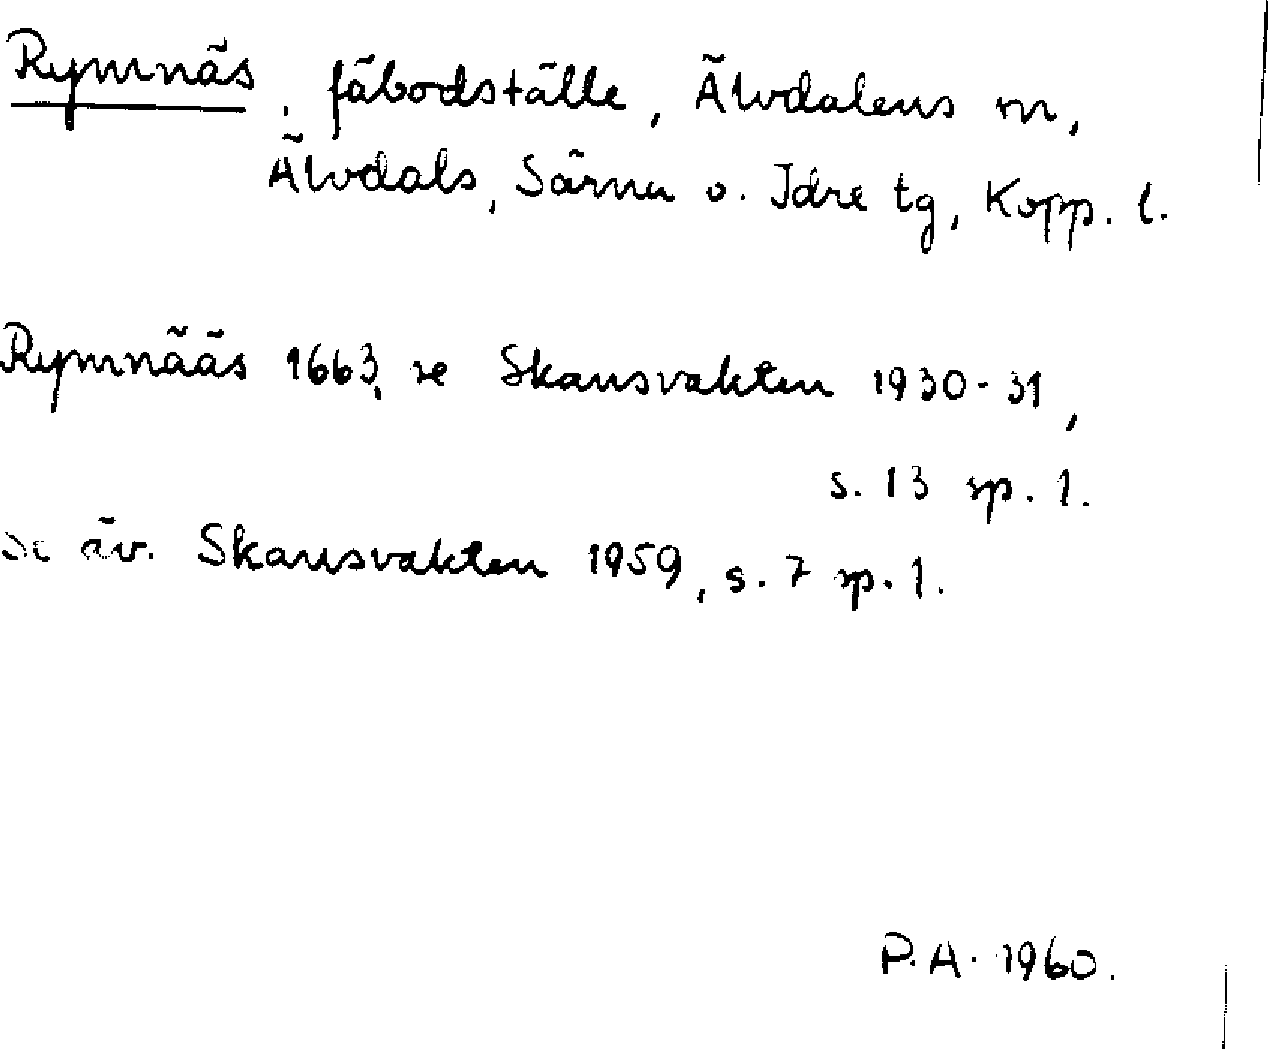 Rymnäs, fäbodställe, Älvdalens m,
Älvdals, Särna o. Idre tg, Kopp. l.
Rymnääs 1663, se Skansvakten 1930-31,
s. 13 sp. 1.
Se äv. Skansvakten 1959, s. 7 sp. 1.
P.A. 1960.